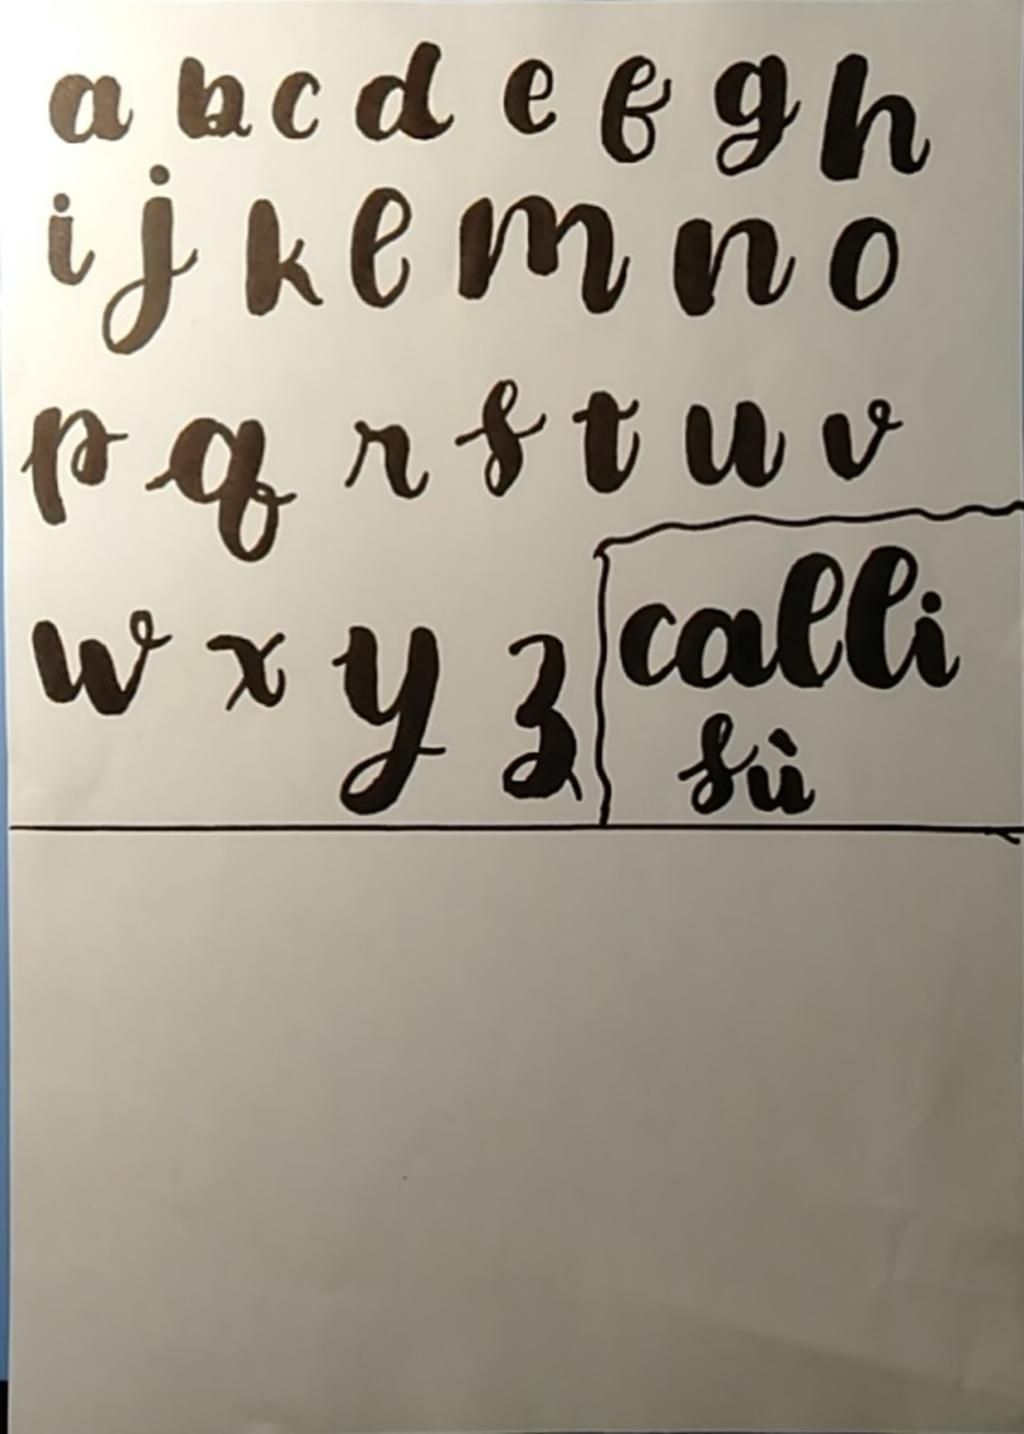 a b c d e f g h
i j k l m n o
p q r s t u v
w x y z
calli
sù